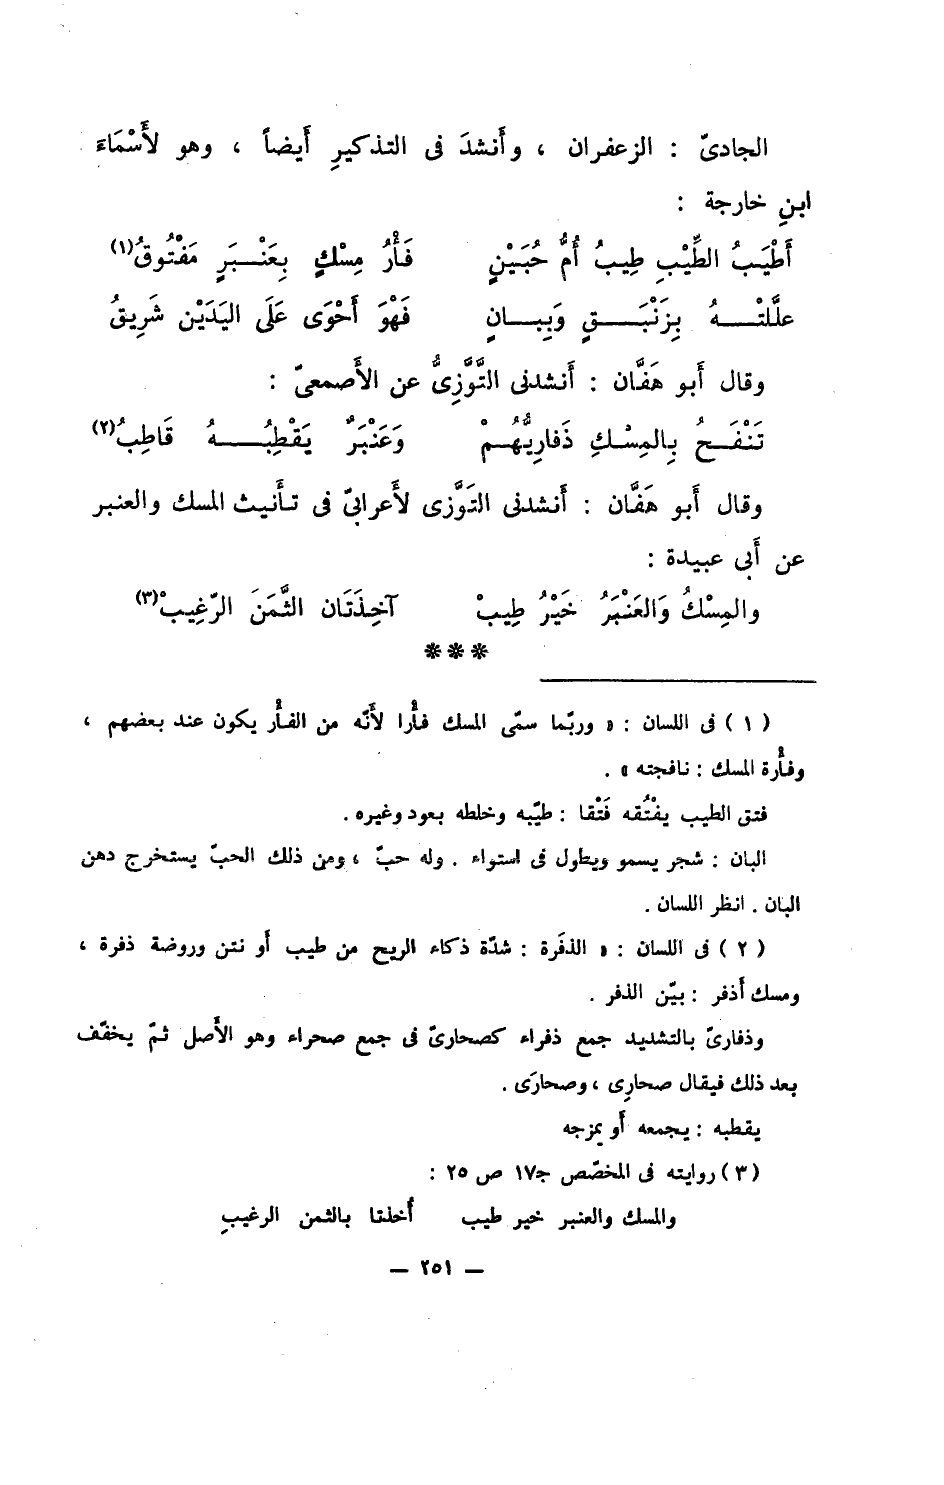 الجادىّ : الزعفران ، وأَنشدَ فى التذكيرِ أَيضاً ، وهو لأَسْمَاءَ
ابنِ خارجة :
أَطْيَبُ الطِّيْبِ طِيبُ أُمُّ حُبَيْنٍ فَأْرُ مِسْكٍ بِعَنْبَرٍ مَفْتُوقُ(١)
علَّلتْهُ بِزَنْبَقٍ وَبِبانٍ فَهْوَ أَحْوَى عَلَى اليَدَيْن شَرِيقُ
وقال أَبو هَفَّان : أَنشدنى التَّوَّزِىُّ عن الأَصمعىّ :
تَنْفَحُ بِالمِسْكِ ذَفارِيُّهُمْ وَعَنْبَرٌ يَقْطِبُهُ قَاطِبُ(٢)
وقال أَبو هَفَّان : أَنشدنى التَوَّزى لأَعرابىّ فى تأْنيث المسك والعنبر
عن أَبى عبيدة :
والمِسْكُ وَالعَنْبَرُ خَيْرُ طِيبْ آخِذَتَان الثَّمَنَ الرّغِيبْ(٣)
***
(١) فى اللسان : « وربّما سمّى المسك فأْرا لأَنّه من الفأْر يكون عند بعضهم ،
وفأْرة المسك : نافجته » .
فتق الطيب يفْتُقه فَتْقا : طيّبه وخلطه بعود وغيره .
البان : شجر يسمو ويطول فى استواء . وله حبّ ، ومن ذلك الحبّ يستخرج دهن
البان . انظر اللسان .
(٢) فى اللسان : « الذفَرة : شدّة ذكاء الريح من طيب أَو نتن وروضة ذفرة ،
ومسك أَذفر : بيّن الذفر .
وذفارىّ بالتشديد جمع ذفراء كصحارىّ فى جمع صحراء وهو الأَصل ثمّ يخفّف
بعد ذلك فيقال صحارِى ، وصحارَى .
يقطبه : يجمعه أَو يمزجه
(٣) روايته فى المخصّص ج١٧ ص ٢٥ :
والمسك والعنبر خير طيب أُخذتا بالثمن الرغيبِ
— ٢٥١ —